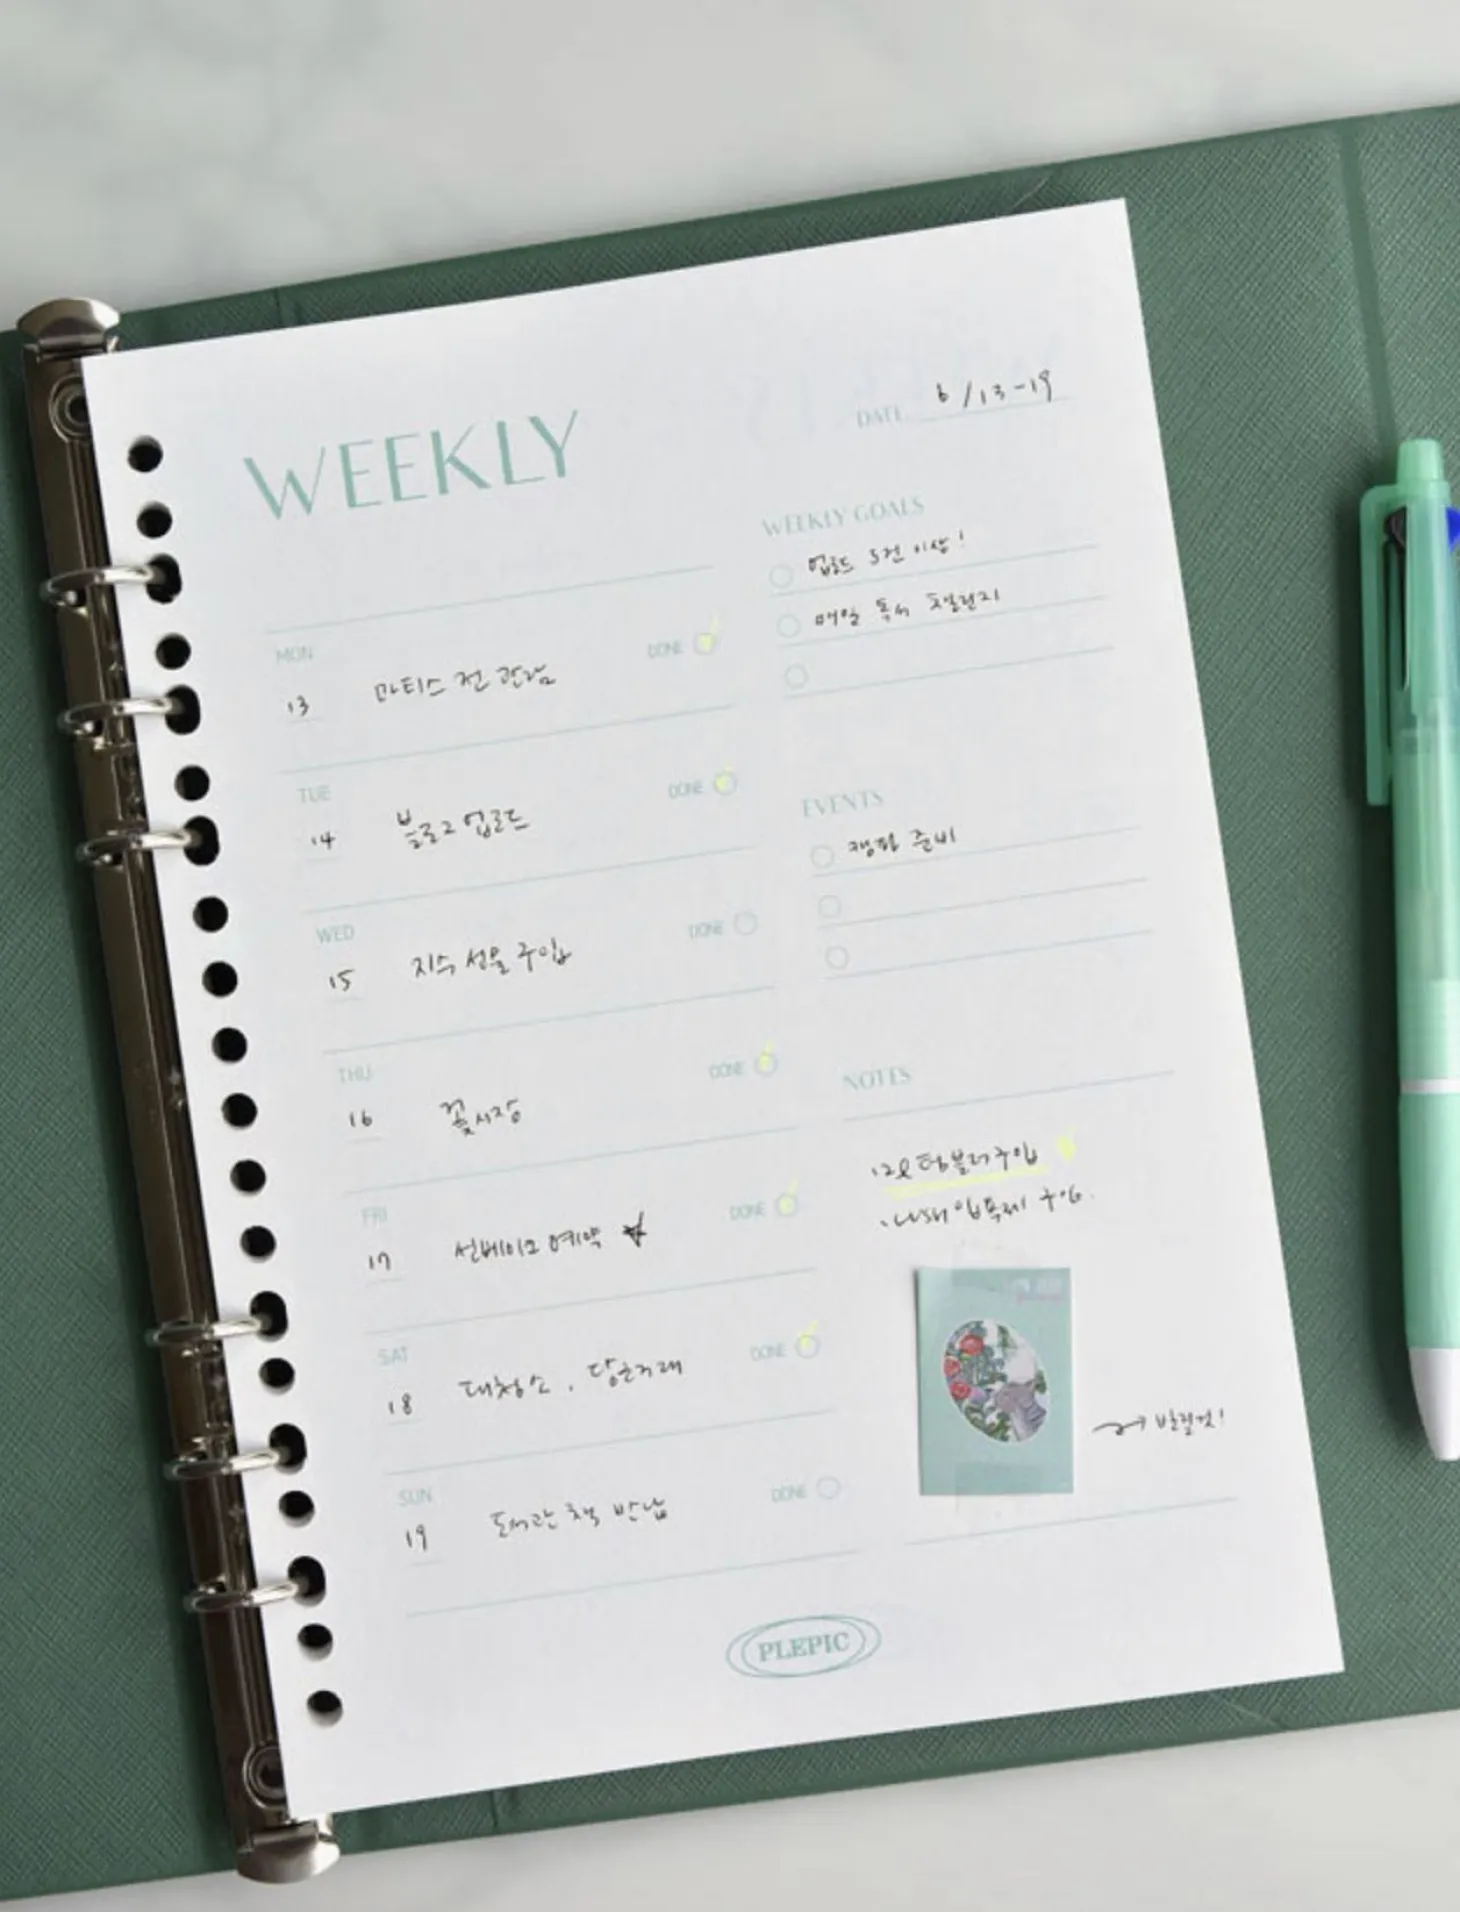 WEEKLY
DATE 6/13-19
MON
13 마티스 전 관람
DONE
TUE
14 블로그 업로드
DONE
WED
15 지수 선물 구입
DONE
THU
16 꽃시장
DONE
FRI
17 선베이오 예약
DONE
SAT
18 대청소, 당근거래
DONE
SUN
19 도서관 책 반납
DONE
WEEKLY GOALS
업로드 5건 이상!
매일 독서 챌린지
EVENTS
캠핑 준비
NOTES
· 구입
· 입욕제
PLEPIC